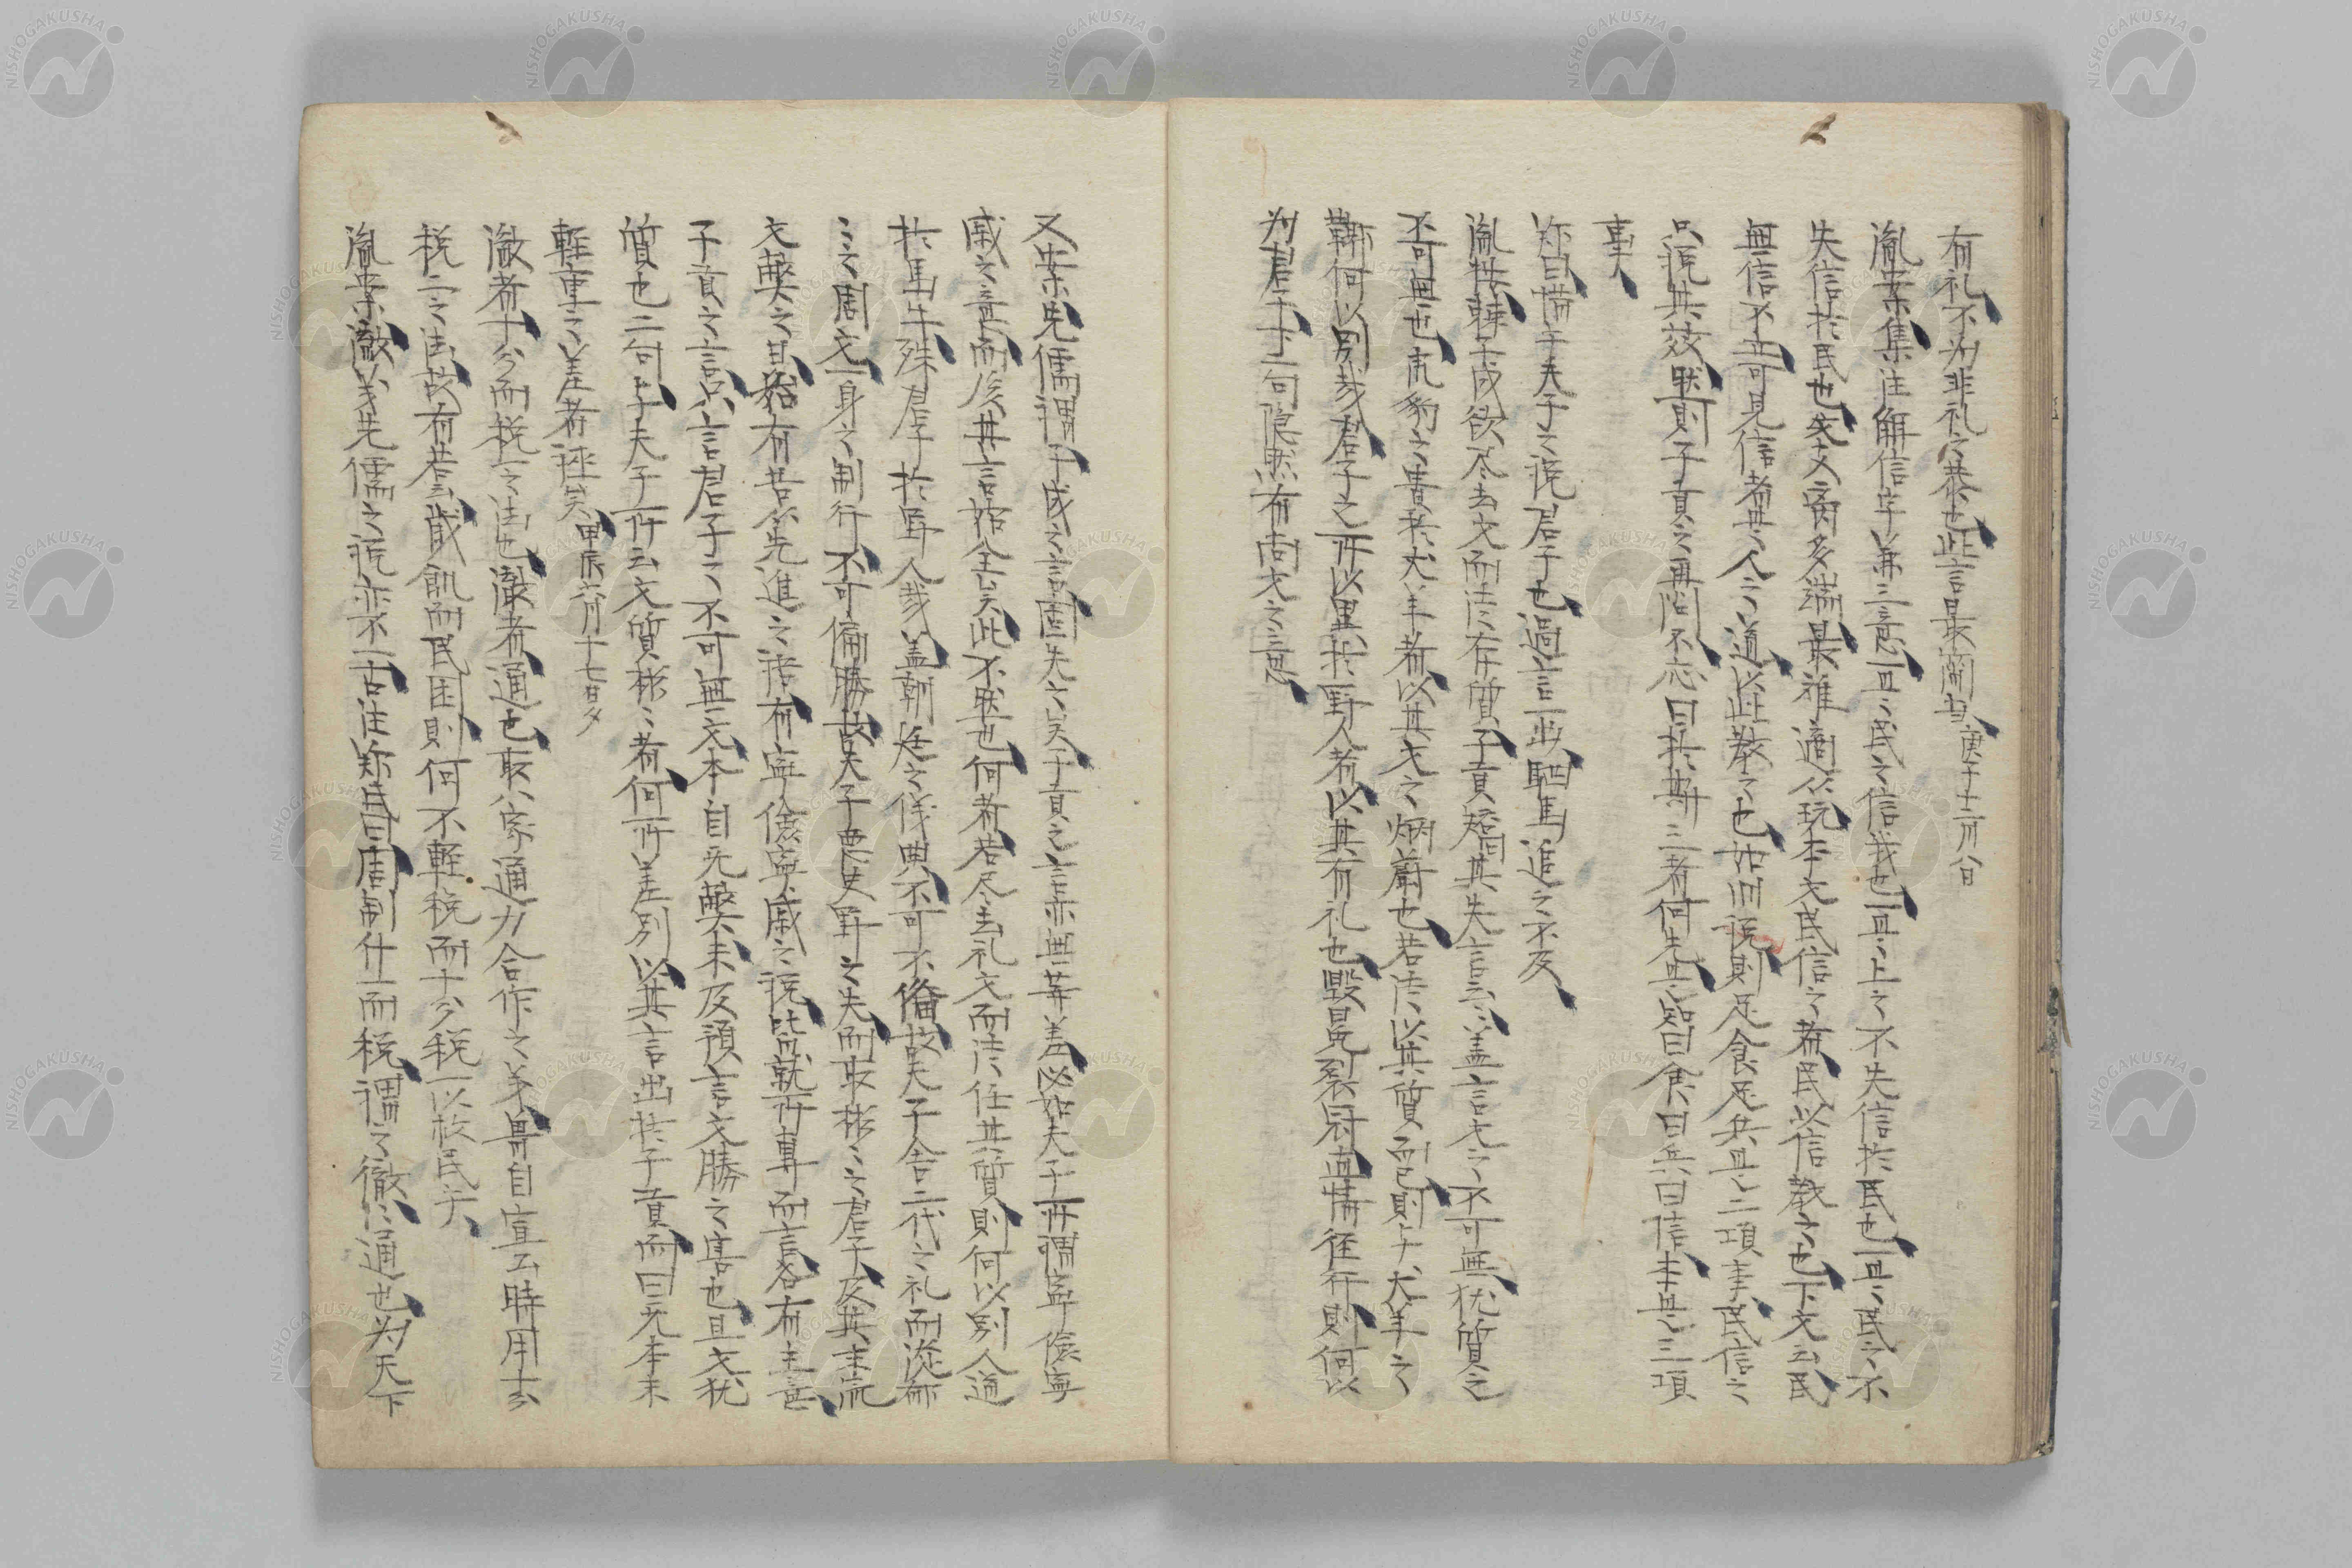 有礼不為非礼之恭也此言最簡切庚子十二月八日
胤案集注解信字兼三意一曰民之信我也一曰上之不失信於民也一曰民之不
失信於民也失文裔多端最難適從玩本文民信之者民以信教之也下文云民
無信不立可見信者其人之道以此教之也如旧説則足食足兵且上二項事民信之
只説其效然則子貢之再問不忘曰於斯三者何先其答曰食曰兵曰信主其三項
事入
注曰惜乎夫子之説君子也過言一出駟馬追之不及
胤按棘子成欲尽去文而徒存質子貢矯其失言云云蓋言文之不可無猶質之
不可無也虎豹之貴於犬羊者以其文之炳蔚也若徒以其質而已則与犬羊之
鞹何以別哉君子之所以異於野人者以其有礼也毀冕裂冠直情径行則何以
為君子下一句隠然有尚文之意
又案先儒謂子成之言固失之矣子貢之言亦無等差以如夫子所謂寧倹寧
戚之意而後其言始全矣此不然也何者若尽去礼文而徒任其質則何以別人道
於馬牛殊君子於野人哉蓋朝廷之儀典不可不備故夫子舎二代之礼而從郁
〻之周文一身之制行不可偏勝故夫子悪史野之失而取彬〻之君子及其末流
文弊之甚始有若答先進之語有寧倹寧戚之説皆就所事而言各有主意
子貢之言只言君子之不可無文本自无弊未及預言文勝之害也且文猶
質也二句与夫子所云文質彬〻者何所差別以其言出於子貢而曰无本末
軽重之差者誣矣甲辰六月十七日夕
徹者十分而税一之法也徹者通也取八家通力合作之義畢自宣云時用十分
税二之法故有若云歳飢而民困則何不軽税而十分税一以救民矣
胤案徹義先儒之説亦不一古注鄭氏曰周制什一而税謂之徹〻通也為天下